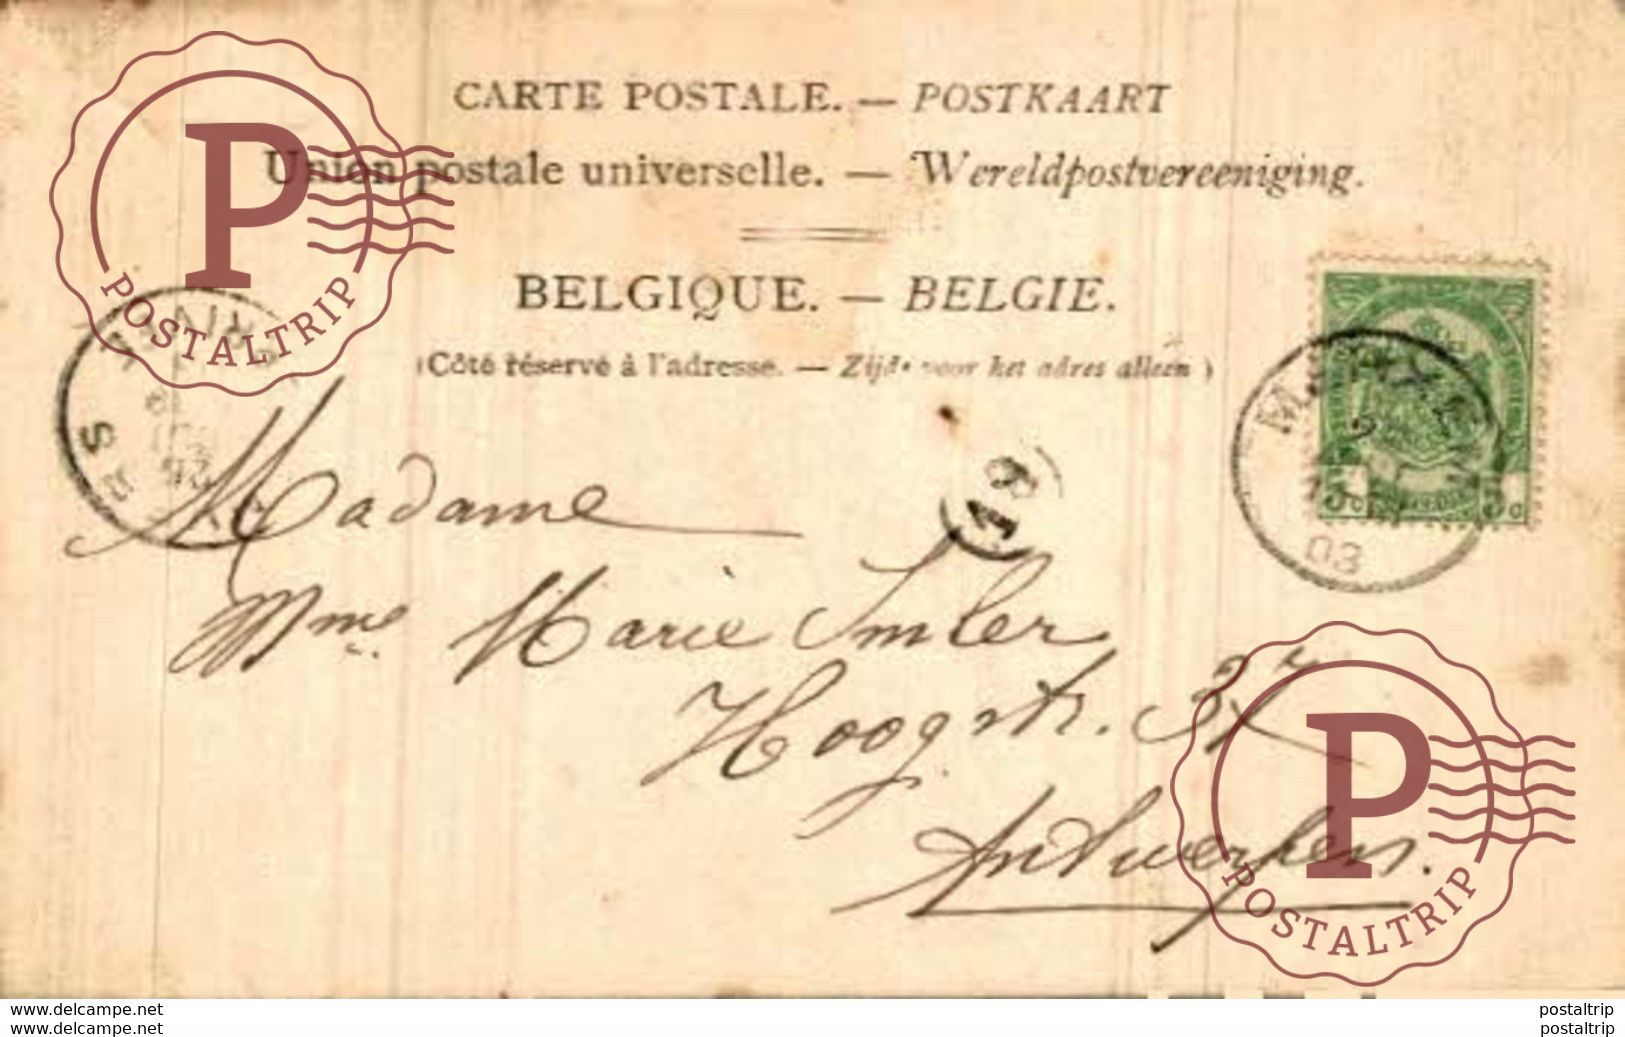 CARTE POSTALE. — POSTKAART
Union postale universelle. — Wereldpostvereeniging.
BELGIQUE. — BELGIE.
(Côté réservé à l'adresse. — Zijde voor het adres alleen)
POSTALTRIP
19
03
5c 5c
Madame
Mme Marie Imler
Hoogstr. 37
Antwerpen.
POSTALTRIP
www.delcampe.net
www.delcampe.net
postaltrip
postaltrip